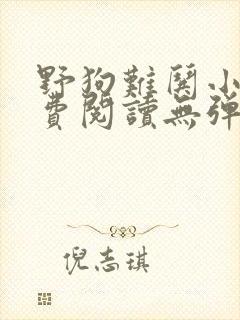 野狗難関小
費閱讀無彈
倪志琪